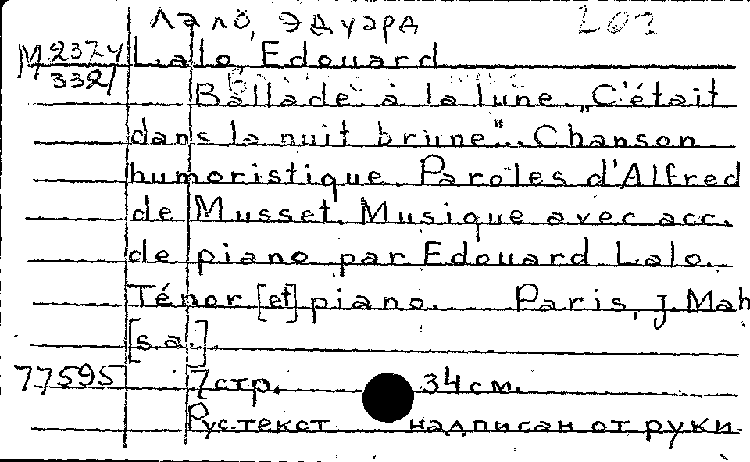 Лало, Эдуард 201
М 2374/3321 Lalo, Edouard
Ballade à la lune „C'était
dans la nuit brune”.. Chanson
humoristique. Paroles d'Alfred
de Musset. Musique avec acc.
de piano par Edouard Lalo.
Ténor [et] piano. Paris, J. Mah
[s.a.].
77595 7 стр. 34 см.
Рус. текст надписан от руки